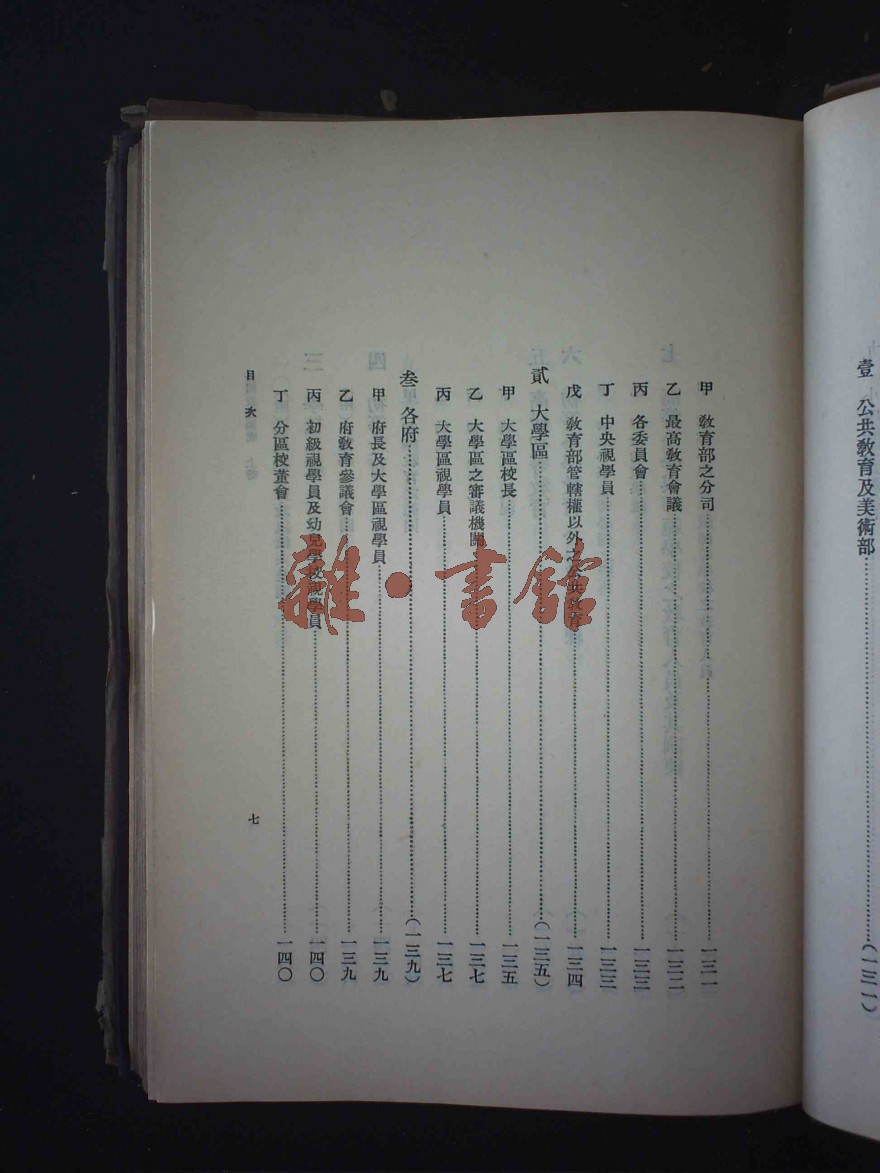 壹 公共教育及美術部……(一三一)
甲 教育部之分司……一三一
乙 最高教育會議……一三二
丙 各委員會……一三三
丁 中央視學員……一三三
戊 教育部管轄權以外之公共教育……一三四
貳 大學區……(一三五)
甲 大學區校長……一三五
乙 大學區之審議機關……一三七
丙 大學區視學員……一三七
叁 各府……(一三九)
甲 府長及大學區視學員……一三九
乙 府教育參議會……一三九
丙 初級視學員及幼兒學校視學員……一四〇
丁 分區校董會……一四〇
目次 七
雜·書館